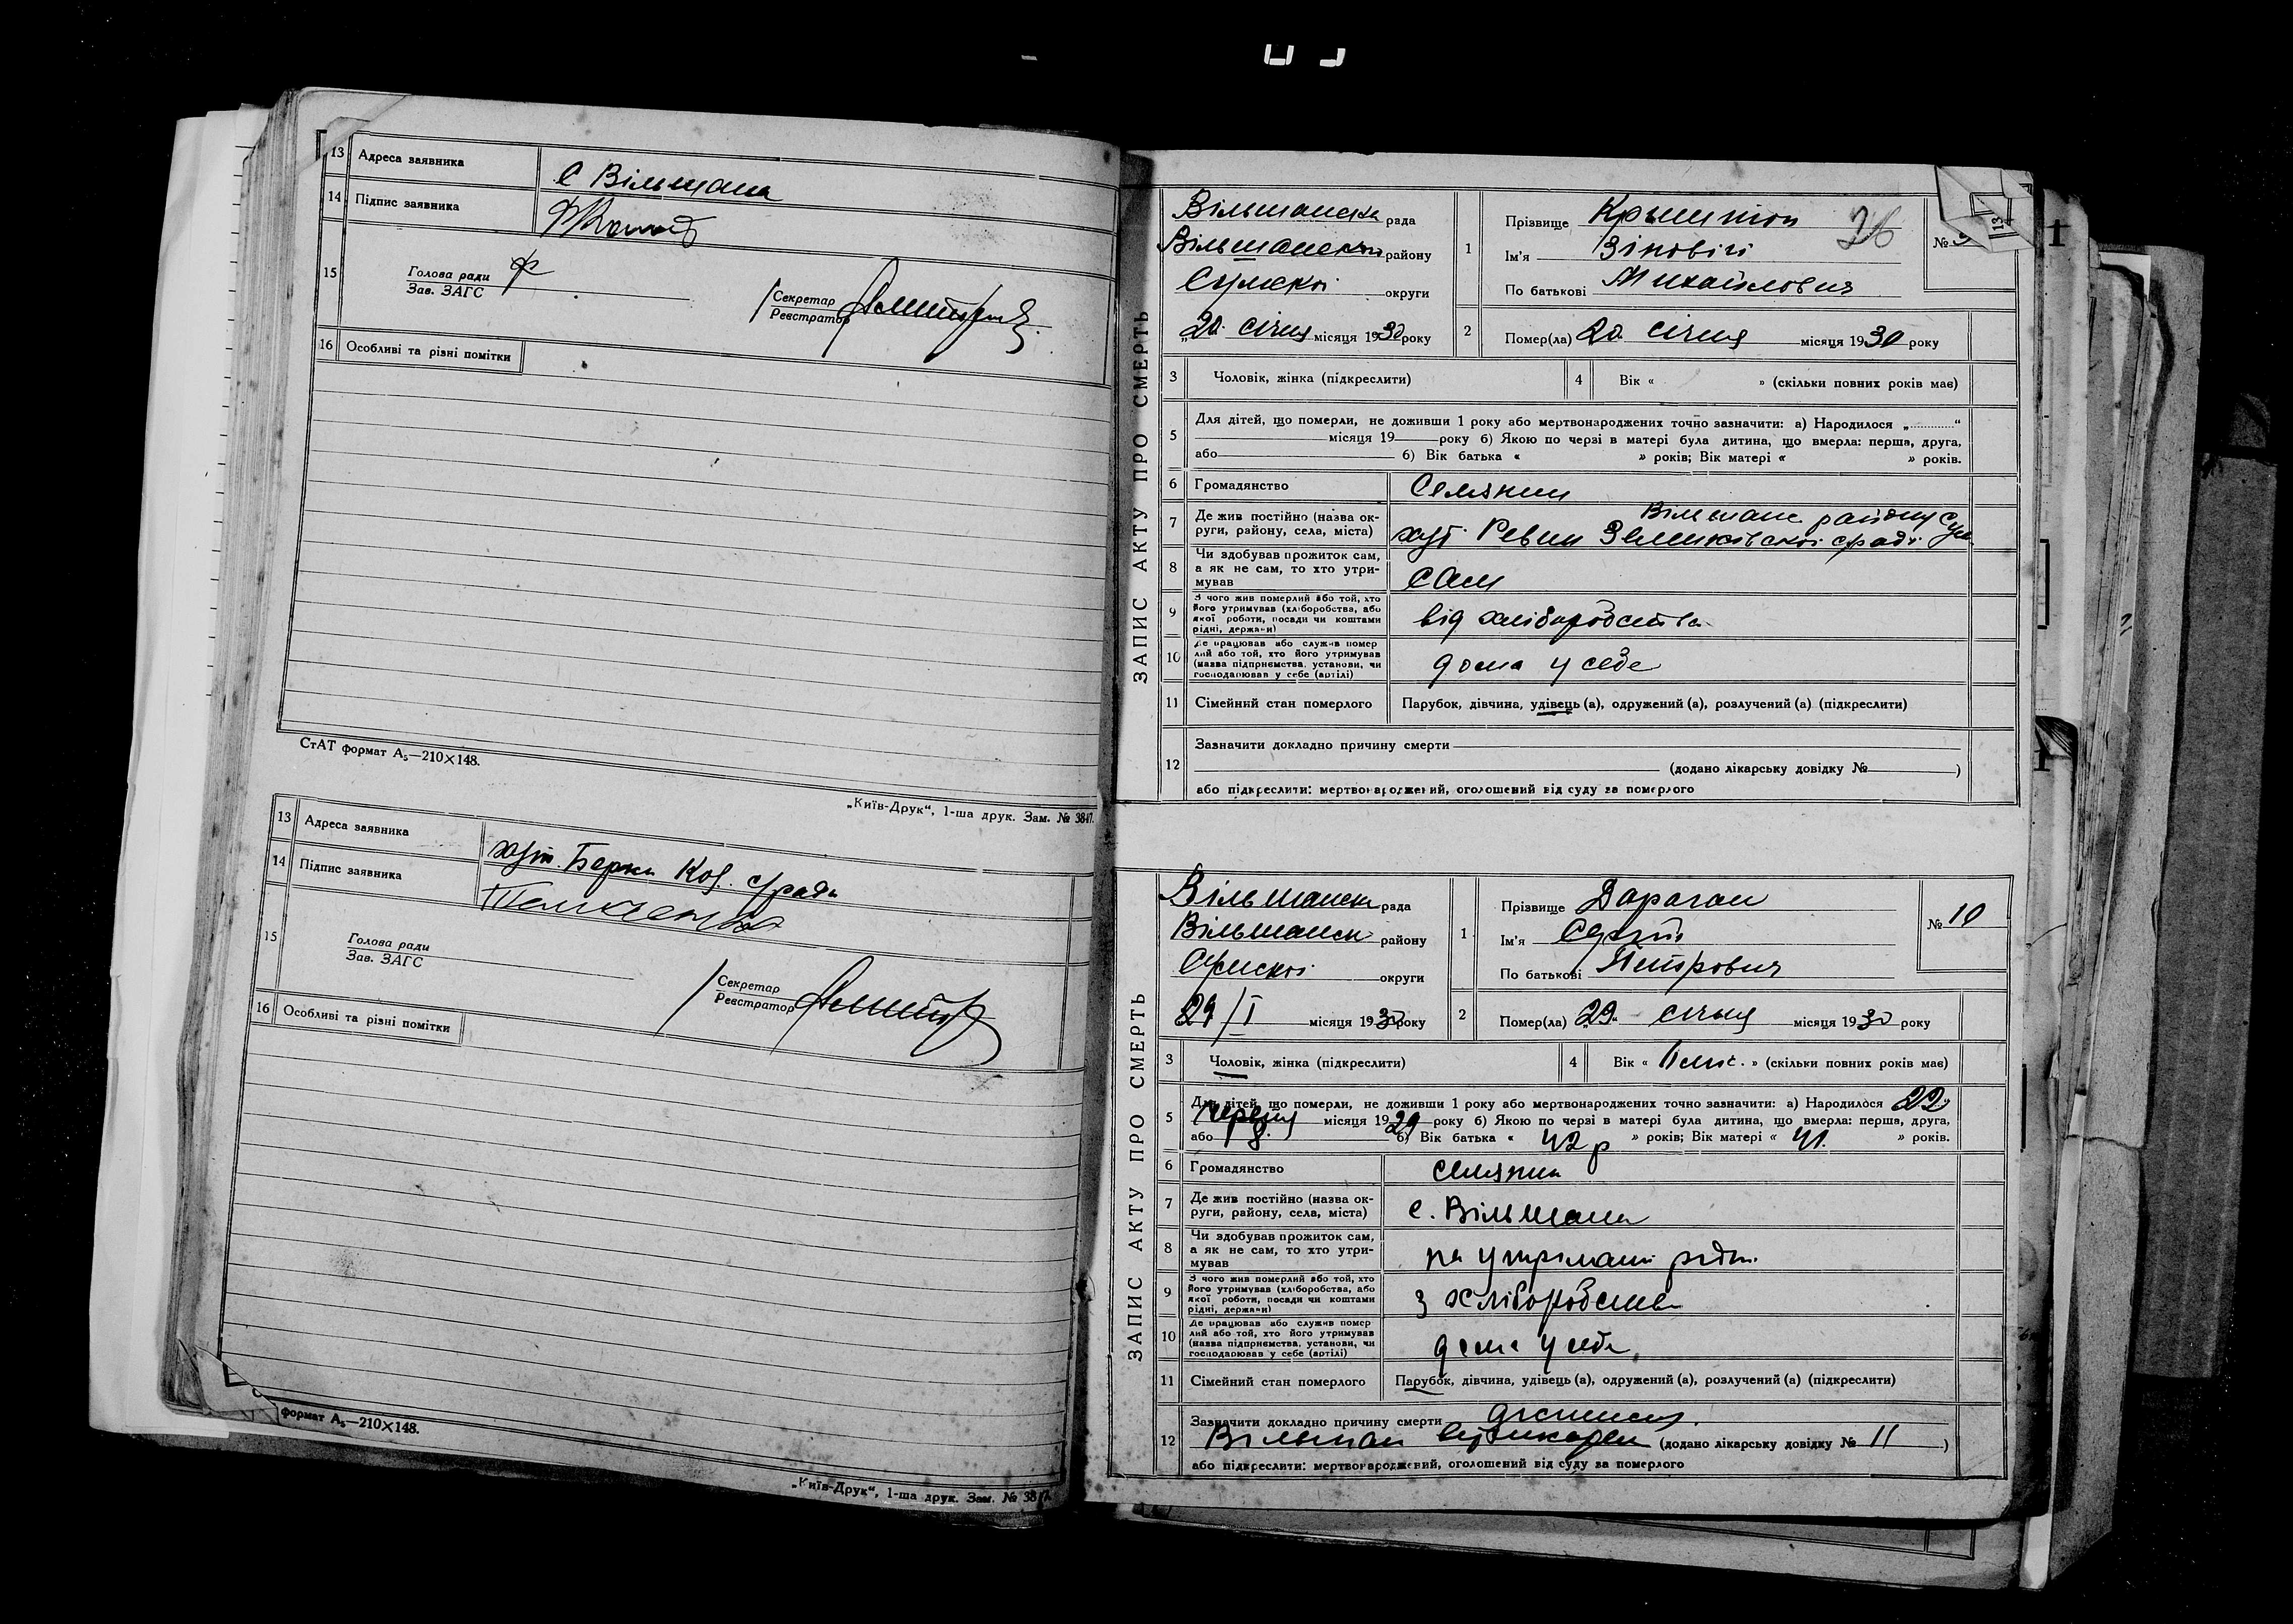 13 Адреса заявника С Вільшана
14 Підпис заявника
15 Голова ради
Зав. ЗАГС
Секретар
Реєстратор
16 Особливі та різні помітки
СтАТ формат А₅—210×148.
„Київ-Друк“, 1-ша друк. Зам. № 3847.
13 Адреса заявника хут. Берки Ков. с/ради
14 Підпис заявника
15 Голова ради
Зав. ЗАГС
Секретар
Реєстратор
16 Особливі та різні помітки
формат А₅—210×148.
„Київ-Друк“, 1-ша друк. Зам. № 38
ЗАПИС АКТУ ПРО СМЕРТЬ
Вільшанська рада
Вільшанськ району
Сумскоі округи
20 січня місяця 1930 року
1 Прізвище Крыштоп 26
Ім'я Зіновій
По батькові Михайлович
№
2 Помер(ла) 20 січня місяця 1930 року
3 Чоловік, жінка (підкреслити) 4 Вік « » (скільки повних років має)
5 Для дітей, що померли, не доживши 1 року або мертвонароджених точно зазначити: а) Народилося „ “
місяця 19 року б) Якою по черзі в матері була дитина, що вмерла: перша, друга,
або б) Вік батька « » років; Вік матері « » років.
6 Громадянство Селянин
7 Де жив постійно (назва округи, району, села, міста) Вільшан. району Сум
хут. Ревки с/ради
8 Чи здобував прожиток сам,
а як не сам, то хто утримував сам
9 З чого жив померлий або той, хто
його утримував (хліборобства, або
якої роботи, посади чи коштами
рідні, держави) від хліборобства
10 Де працював або служив померлий або той, хто його утримував
(назва підприємства, установи, чи
господарював у себе (артілі) дома у себе
11 Сімейний стан померлого Парубок, дівчина, удівець (а), одружений (а), розлучений (а) (підкреслити)
12 Зазначити докладно причину смерти
(додано лікарську довідку № )
або підкреслити: мертвонароджений, оголошений від суду за померлого
ЗАПИС АКТУ ПРО СМЕРТЬ
Вільшанськ рада
Вільшанськ району
Сумскоі округи
29/I місяця 1930 року
1 Прізвище Дараган
Ім'я Сергій
По батькові Петрович
№ 10
2 Помер(ла) „29“ січня місяця 1930 року
3 Чоловік, жінка (підкреслити) 4 Вік « » (скільки повних років має)
5 Для дітей, що померли, не доживши 1 року або мертвонароджених точно зазначити: а) Народилося 22
червня місяця 1929 року б) Якою по черзі в матері була дитина, що вмерла: перша, друга,
або 8. б) Вік батька « 42 р » років; Вік матері « 41. » років.
6 Громадянство селянин
7 Де жив постійно (назва округи, району, села, міста) с. Вільшана
8 Чи здобував прожиток сам,
а як не сам, то хто утримував на утрімані рідні
9 З чого жив померлий або той, хто
його утримував (хліборобства, або
якої роботи, посади чи коштами
рідні, держави) з хліборобства
10 Де працював або служив померлий або той, хто його утримував
(назва підприємства, установи, чи
господарював у себе (артілі) дома у себе
11 Сімейний стан померлого Парубок, дівчина, удівець (а), одружений (а), розлучений (а) (підкреслити)
12 Зазначити докладно причину смерти
Вільшан (додано лікарську довідку № 11 )
або підкреслити: мертвонароджений, оголошений від суду за померлого